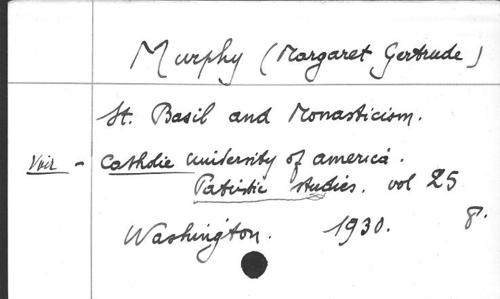 Murphy (Margaret Gertrude)
St. Basil and Monasticism.
Voir - Catholic University of america.
Patristic studies. vol 25
Washington. 1930. 8.